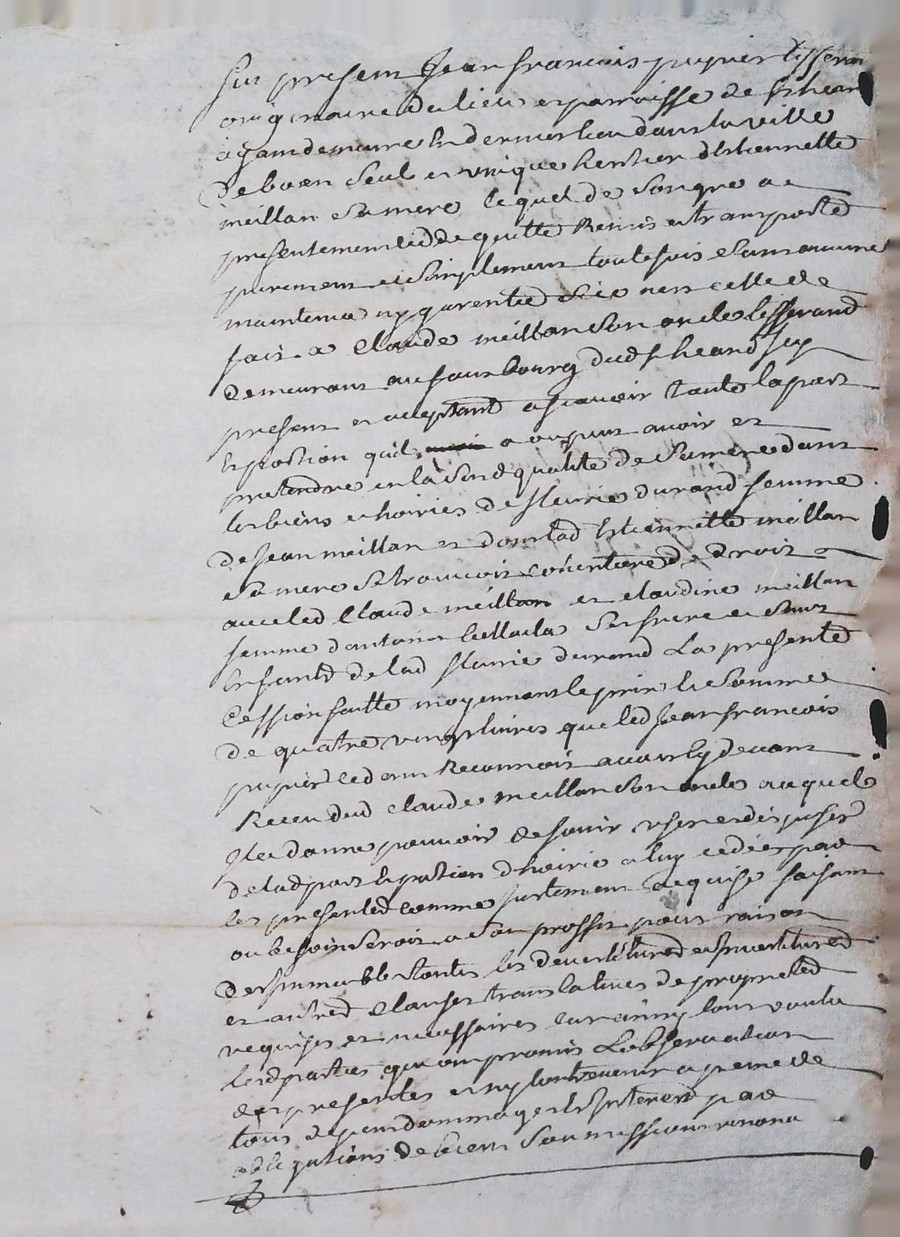 fut present Jean francois pupier tisseran
originaire du lieu et parroisse de
ayant demeure en dernier lieu dans la ville
de boen seul et unique heritier d'Estiennette
meillan sa mere lequel de son gre a
presentement cedde quitte Remis et transporte
purement et simplement toutefois sans aucune
maintenue ny garentie si ce nest celle de
fait a Claude meillan son oncle tisserand
demeurant au faux bourg dud
present et acceptant ascavoir toute la part
Et portion quil a ou peut avoir et
pretendre en lad qualite de sa mere dans
les biens et hoiries de fleurie durand femme
de Jean meillan et dont lad Estiennette meillan
sa mere se trouvoit coheritiere de droit
avec led Claude meillan et claudine meillan
femme d'antoine ses frere et sœur
Enfants de lad fleurie durand La presente
Cession faitte moyennant le prix et somme
de quatre vingt livres que led Jean francois
pupier cedant Reconnoit avoir cy devant
Receu dud Claude meillan son oncle auquel
Il donne pouvoir de jouir user et disposer
de lad part et portion d'hoirie a luy cedée par
les presentes comme justement acquise faisant
ou besoin seroit a son proffit pour raison
des immeubles toutes les devestitures et investitures
et autres clauses translatives de proprieté
requises et necessaires car ainsy lont voulu
lesd parties qui ont promis Lobservation
des presentes et ny contrevenir a peine de
tous depens dommages et Interest par
obligations de biens soumissions renona